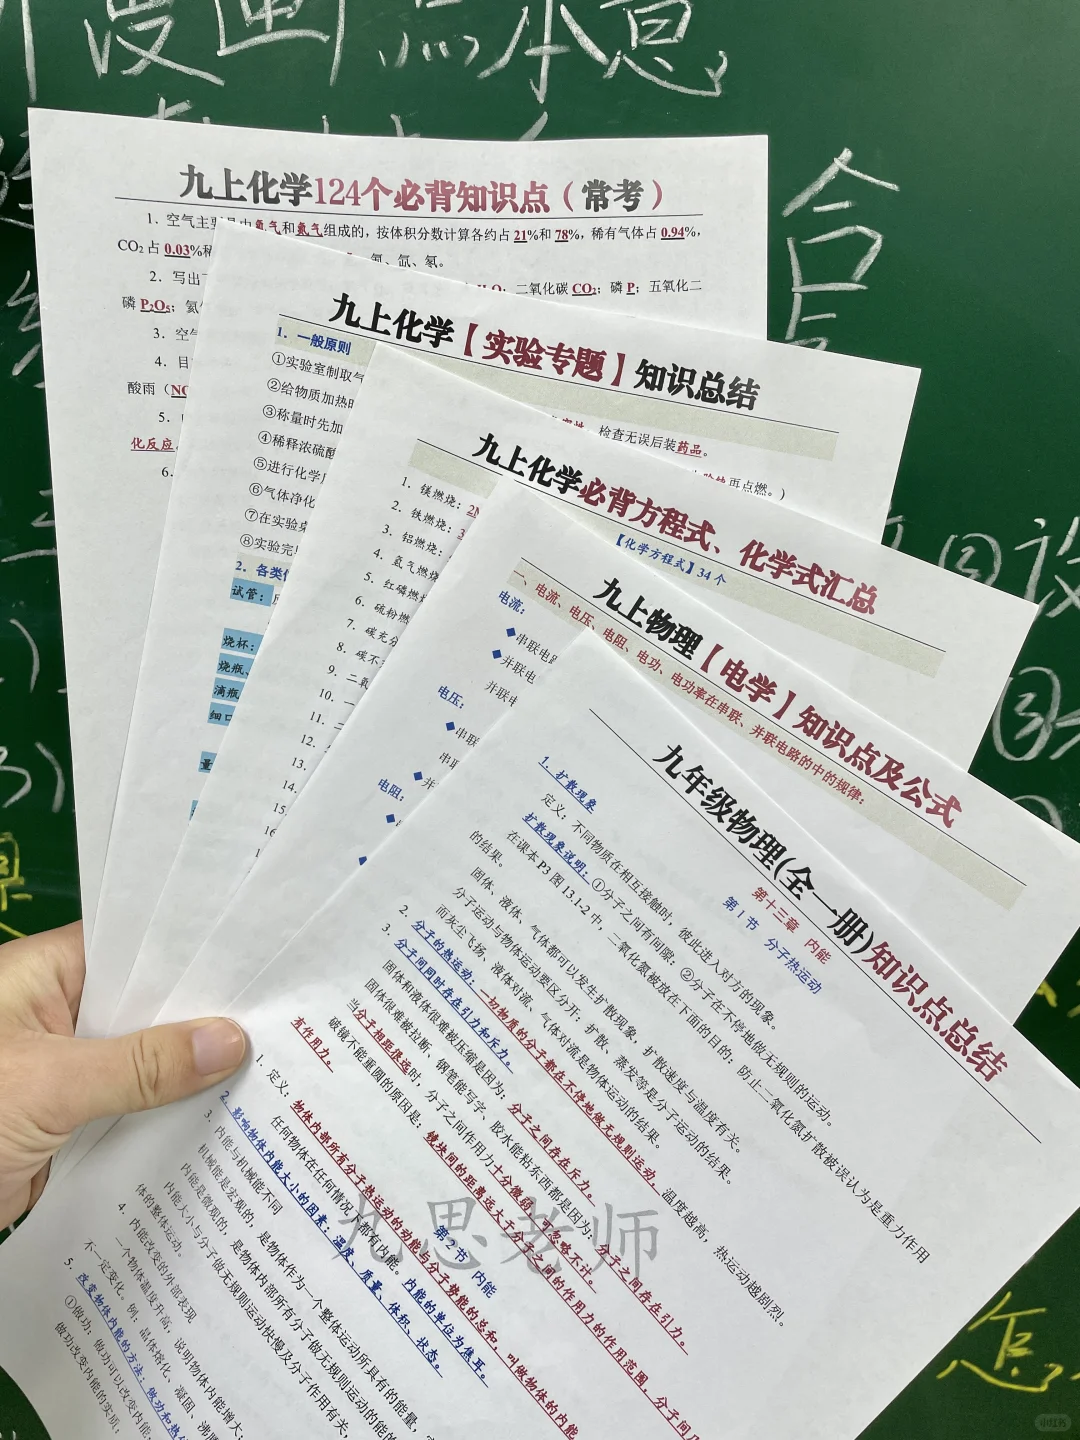 漫画
本息
合
九上化学124个必背知识点（常考）
1. 空气主要是由氧气和氮气组成的，按体积分数计算各约占21%和78%，稀有气体占0.94%，
CO₂占0.03%和
氪、氙、氡。
2. 写出
二氧化碳CO₂；磷P；五氧化二
磷P₂O₅；氦
3. 空气
4. 目
酸雨（NO
5.
化反应
6.
九上化学【实验专题】知识总结
1. 一般原则
①实验室制取气
检查无误后装药品。
②给物质加热
再点燃。）
③称量时先加
④稀释浓硫酸
⑤进行化学
⑥气体净化
⑦在实验桌
⑧实验完
2. 各类
试管：
烧杯：
烧瓶、
滴瓶
细口
量
九上化学必背方程式、化学式汇总
【化学方程式】34个
1. 镁燃烧：2M
2. 铁燃烧：3
3. 铝燃烧：
4. 氢气燃烧
5. 红磷燃
6. 硫粉燃
7. 碳充分
8. 碳不
9. 二氧
10. 一
11. 二
12.
13.
14.
15.
16
九上物理【电学】知识点及公式
一、电流、电压、电阻、电功、电功率在串联、并联电路的中的规律：
电流：
◆串联电路
◆并联电
并联电
电压：
◆串联
串联
◆并
电阻：
九年级物理(全一册)知识点总结
第十三章 内能
第1节 分子热运动
1. 扩散现象
定义：不同物质在相互接触时，彼此进入对方的现象。
扩散现象说明：①分子之间有间隙；②分子在不停地做无规则的运动。
在课本P3图13.1-2中，二氧化氮被放在下面的目的：防止二氧化氮扩散被误认为是重力作用
的结果。
固体、液体、气体都可以发生扩散现象，扩散速度与温度有关。
分子运动与物体运动要区分开：扩散、蒸发等是分子运动的结果，
而灰尘飞扬、液体对流、气体对流是物体运动的结果。
2. 分子的热运动：一切物质的分子都在不停地做无规则运动。温度越高，热运动越剧烈。
3. 分子间同时存在引力和斥力。
固体和液体很难被压缩是因为：分子之间存在斥力。
固体很难被拉断、钢笔能写字、胶水能粘东西都是因为：分子之间存在引力。
当分子相距很远时，分子之间作用力十分微弱，可忽略不计。
破镜不能重圆的原因是：镜块间的距离远大于分子之间的作用力的作用范围，分子间几
有作用力。
第2节 内能
1. 定义：物体内部所有分子热运动的动能与分子势能的总和，叫做物体的内能
任何物体在任何情况下都有内能。内能的单位为焦耳。
2. 影响物体内能大小的因素：温度、质量、体积、状态。
3. 内能与机械能不同
机械能是宏观的，是物体作为一个整体运动所具有的能量，
内能是微观的，是物体内部所有分子做无规则运动的能的
内能大小与分子做无规则运动快慢及分子作用有关，
体的整体运动。
4. 内能改变的外部表现
一个物体温度升高，说明物体内能增大；
不一定变化。例：晶体熔化、凝固、沸腾
5. 改变物体内能的方法：做功和热
①做功：做功可以改变内能，
做功改变内能的实质
九思老师
小红书